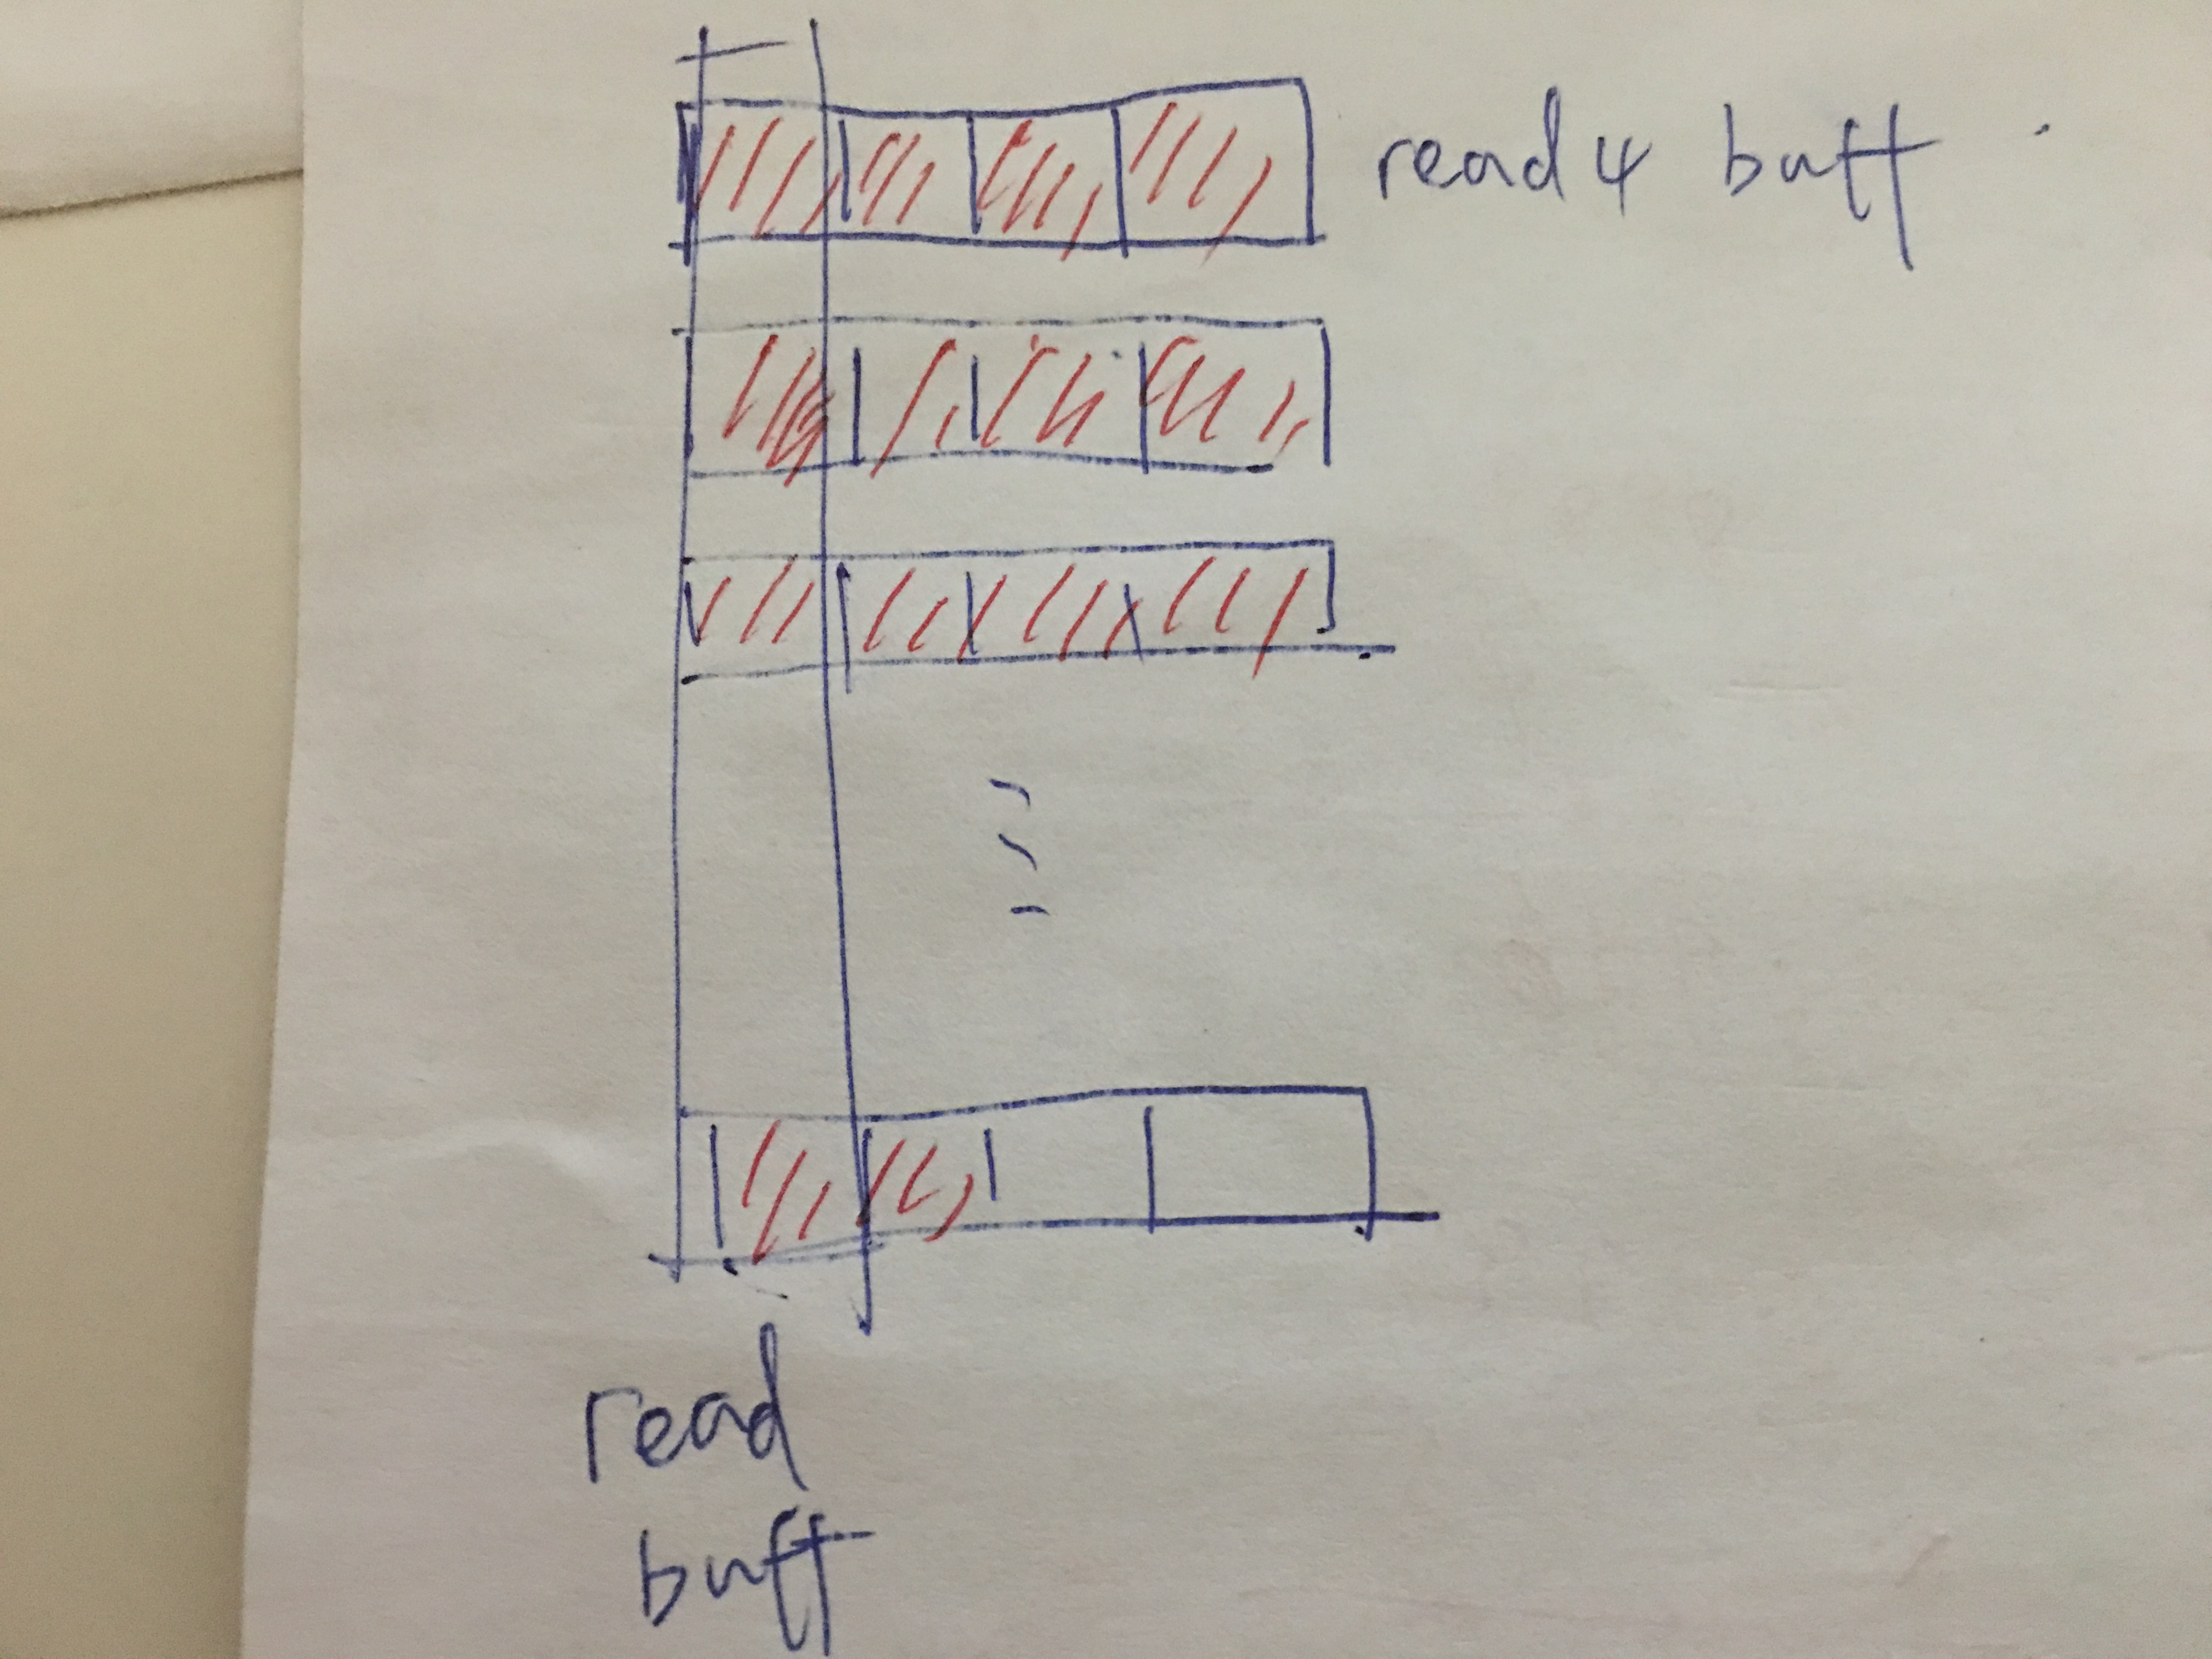 read 4 buff
read
buff